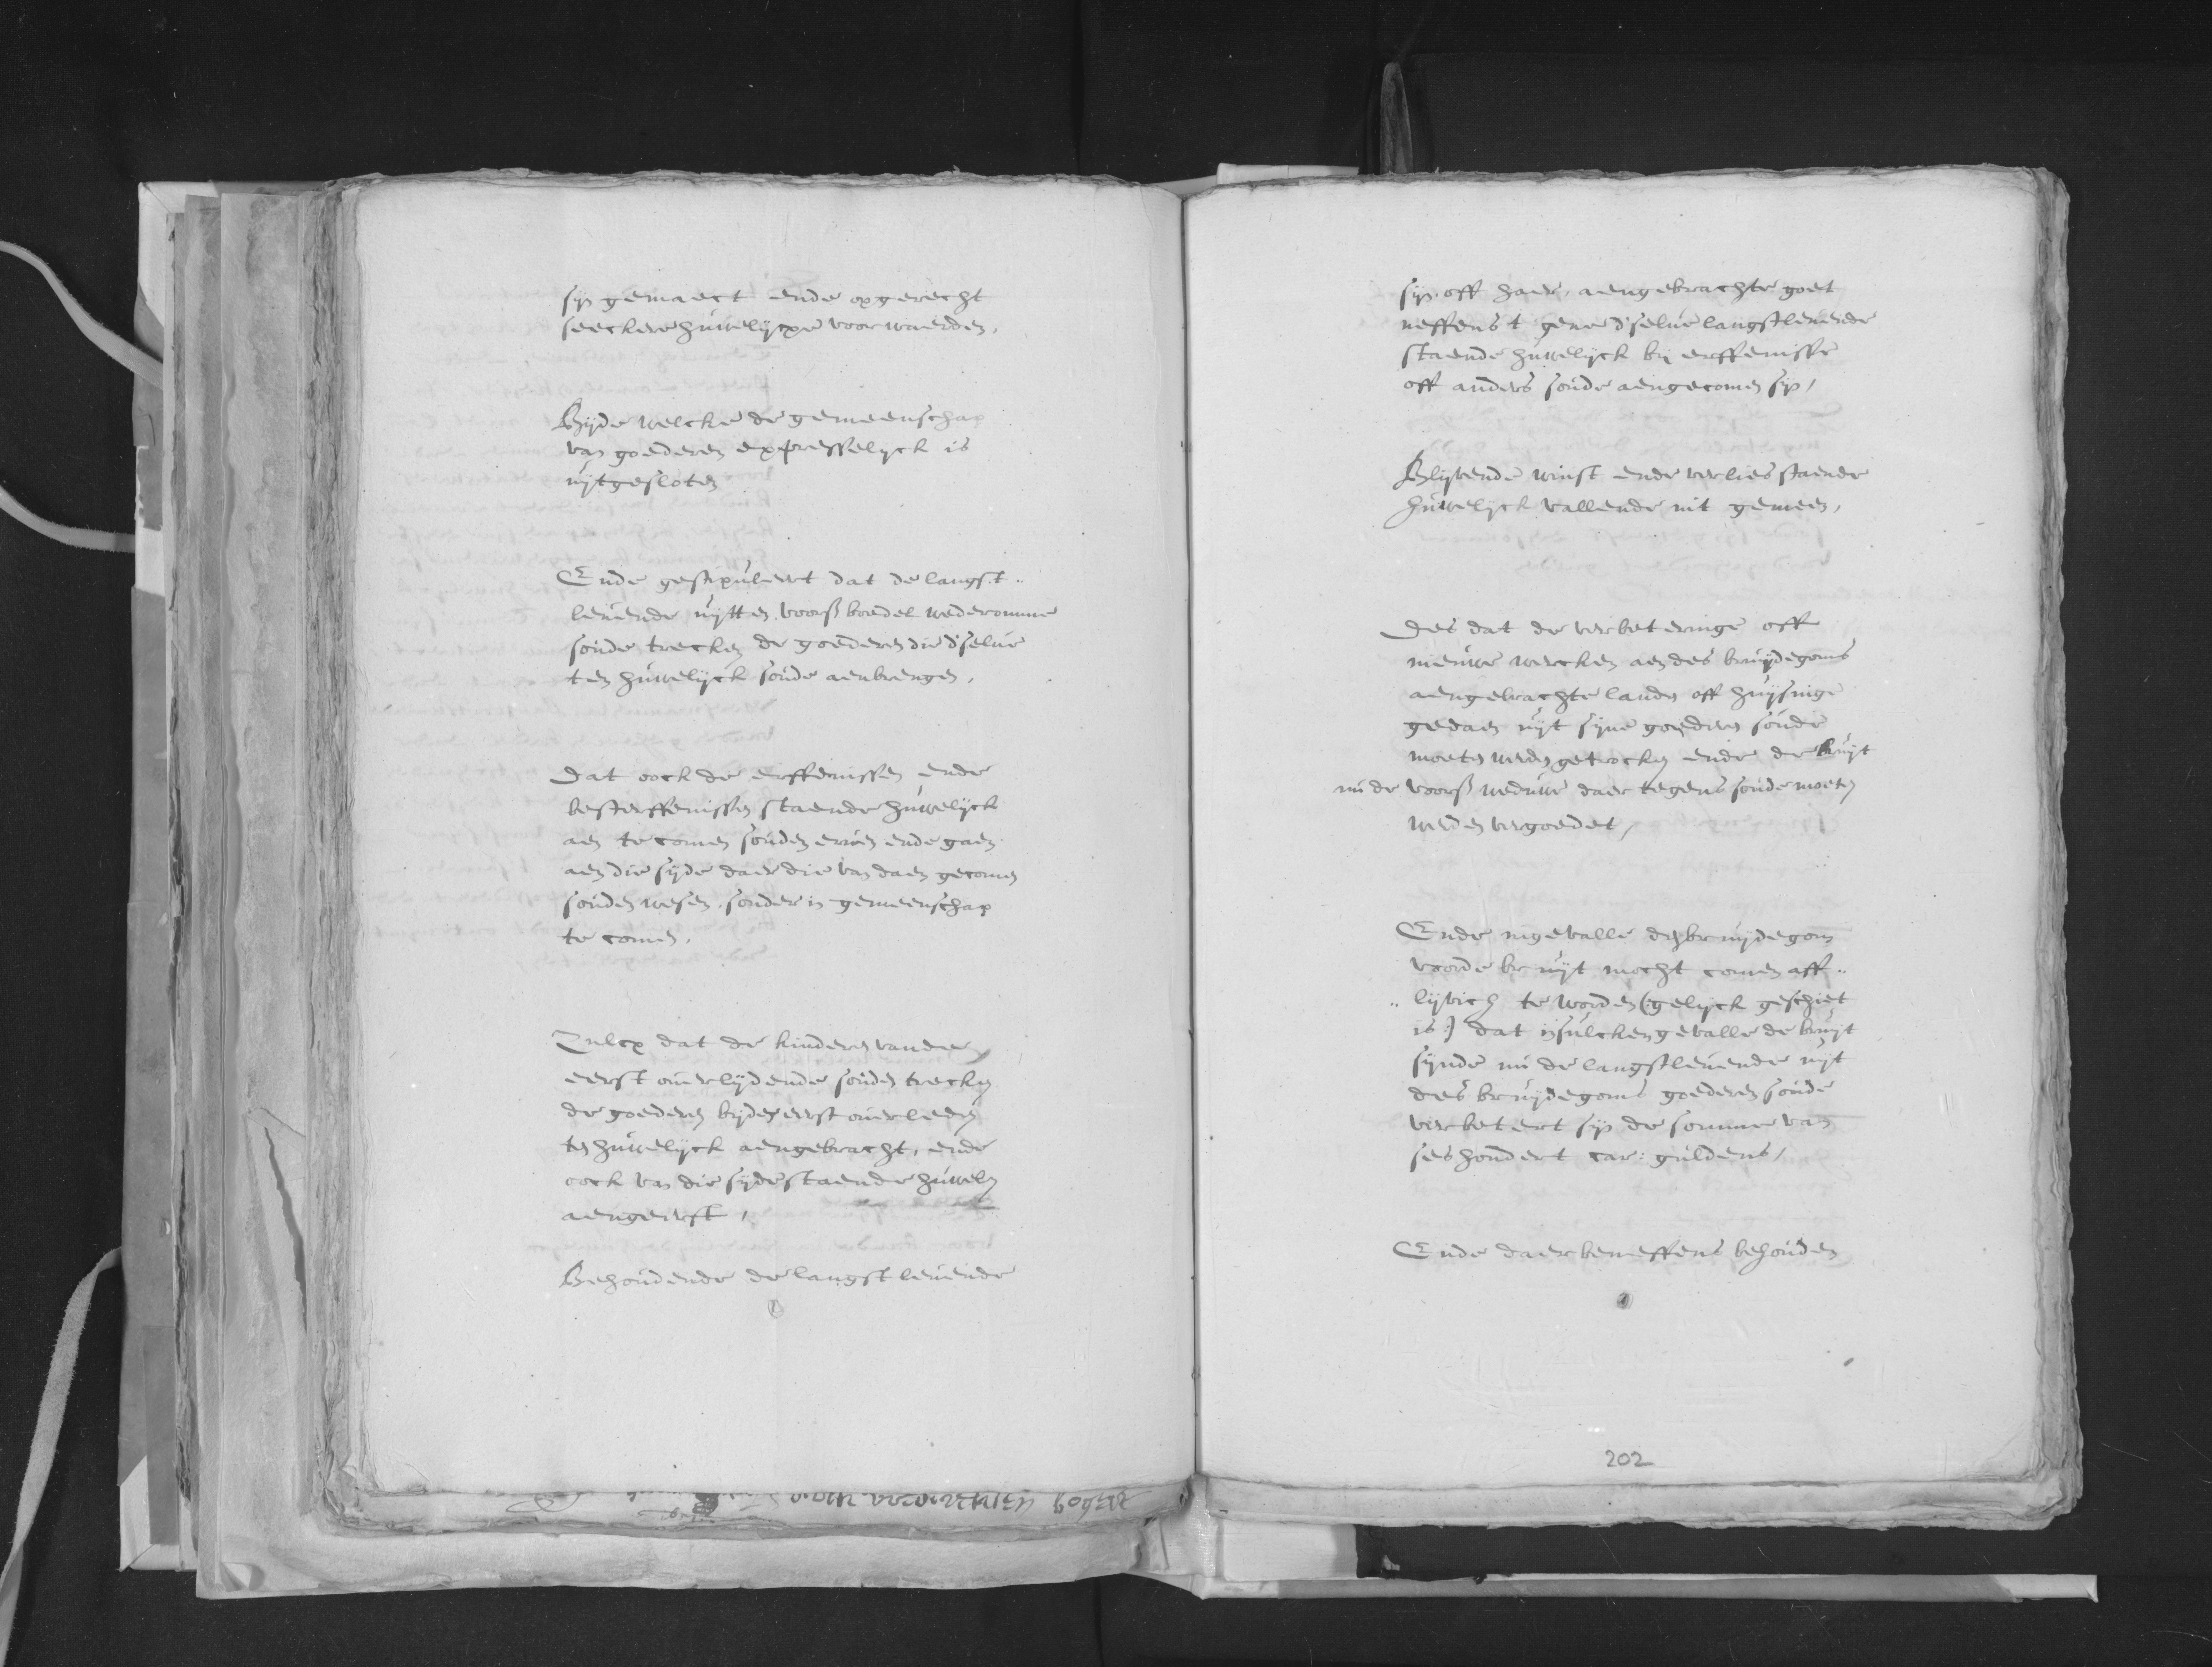 sijn gemaect ende opgerecht
seeckere huwelijcxe voorwaerden,
Bijde welcke de gemeenschap
van goederen expresselijck is
uijtgesloten
Ende gestipuleert dat de langst„
levende uijtten voorß boedel wederomme
soude trecken de goederen die d'selve
ten huwelijck soude aenbrengen,
Dat oock de erffenissen ende
besterffenissen staende huwelijck
aen te comen souden erven ende gaen
aen die sijde daer die van daen gecomen
souden wesen, sonder in gemeenschap
te comen,
Zulcx dat de kinderen vanden
eerst overlijdende souden trecken
de goederen bijden eerst overleden
ten huwelijck aengebracht, ende
oock van die sijde staende huwelij
aengeerft,
Behoudende de langst levende
sijn off haer, aengebrachte goet
neffens t gene d'selve langstlevende
staende huwelijck bij erffenisse
off anders soude aengecomen sijn,
Blijvende winst ende verlies staende
huwelijck vallende int gemeen,
Des dat de verbeteringe off
nieuwe wercken aen des bruijdegoms
aengebrachte landen off huijsinge
gedaen uijt sijne goederen soude
moeten werden getrocken ende de bruijt
nu de voorß weduwe daer tegens soude moeten
werden vergoedet,
Ende ingevalle den bruijdegom
voorde bruijt mocht comen aff„
„lijvich te worden (: gelijck geschiet
is :) dat in sulcken gevalle de bruijt
sijnde nu de langstlevende uijt
des bruijdegoms goederen soude
verbetert sijn de somme van
ses hondert car: guldens,
Ende daerbeneffens behouden
202